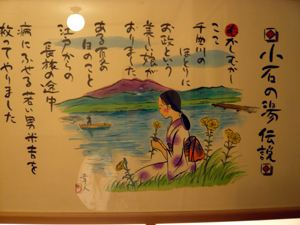 小石の湯 伝説
むかしむかし
ここ
千曲川の
ほとりに
お政という
美しい娘が
おりました
ある春の
日のこと
江戸からの
長旅の途中
病にふせる若い男 弥吉を
救ってやりました